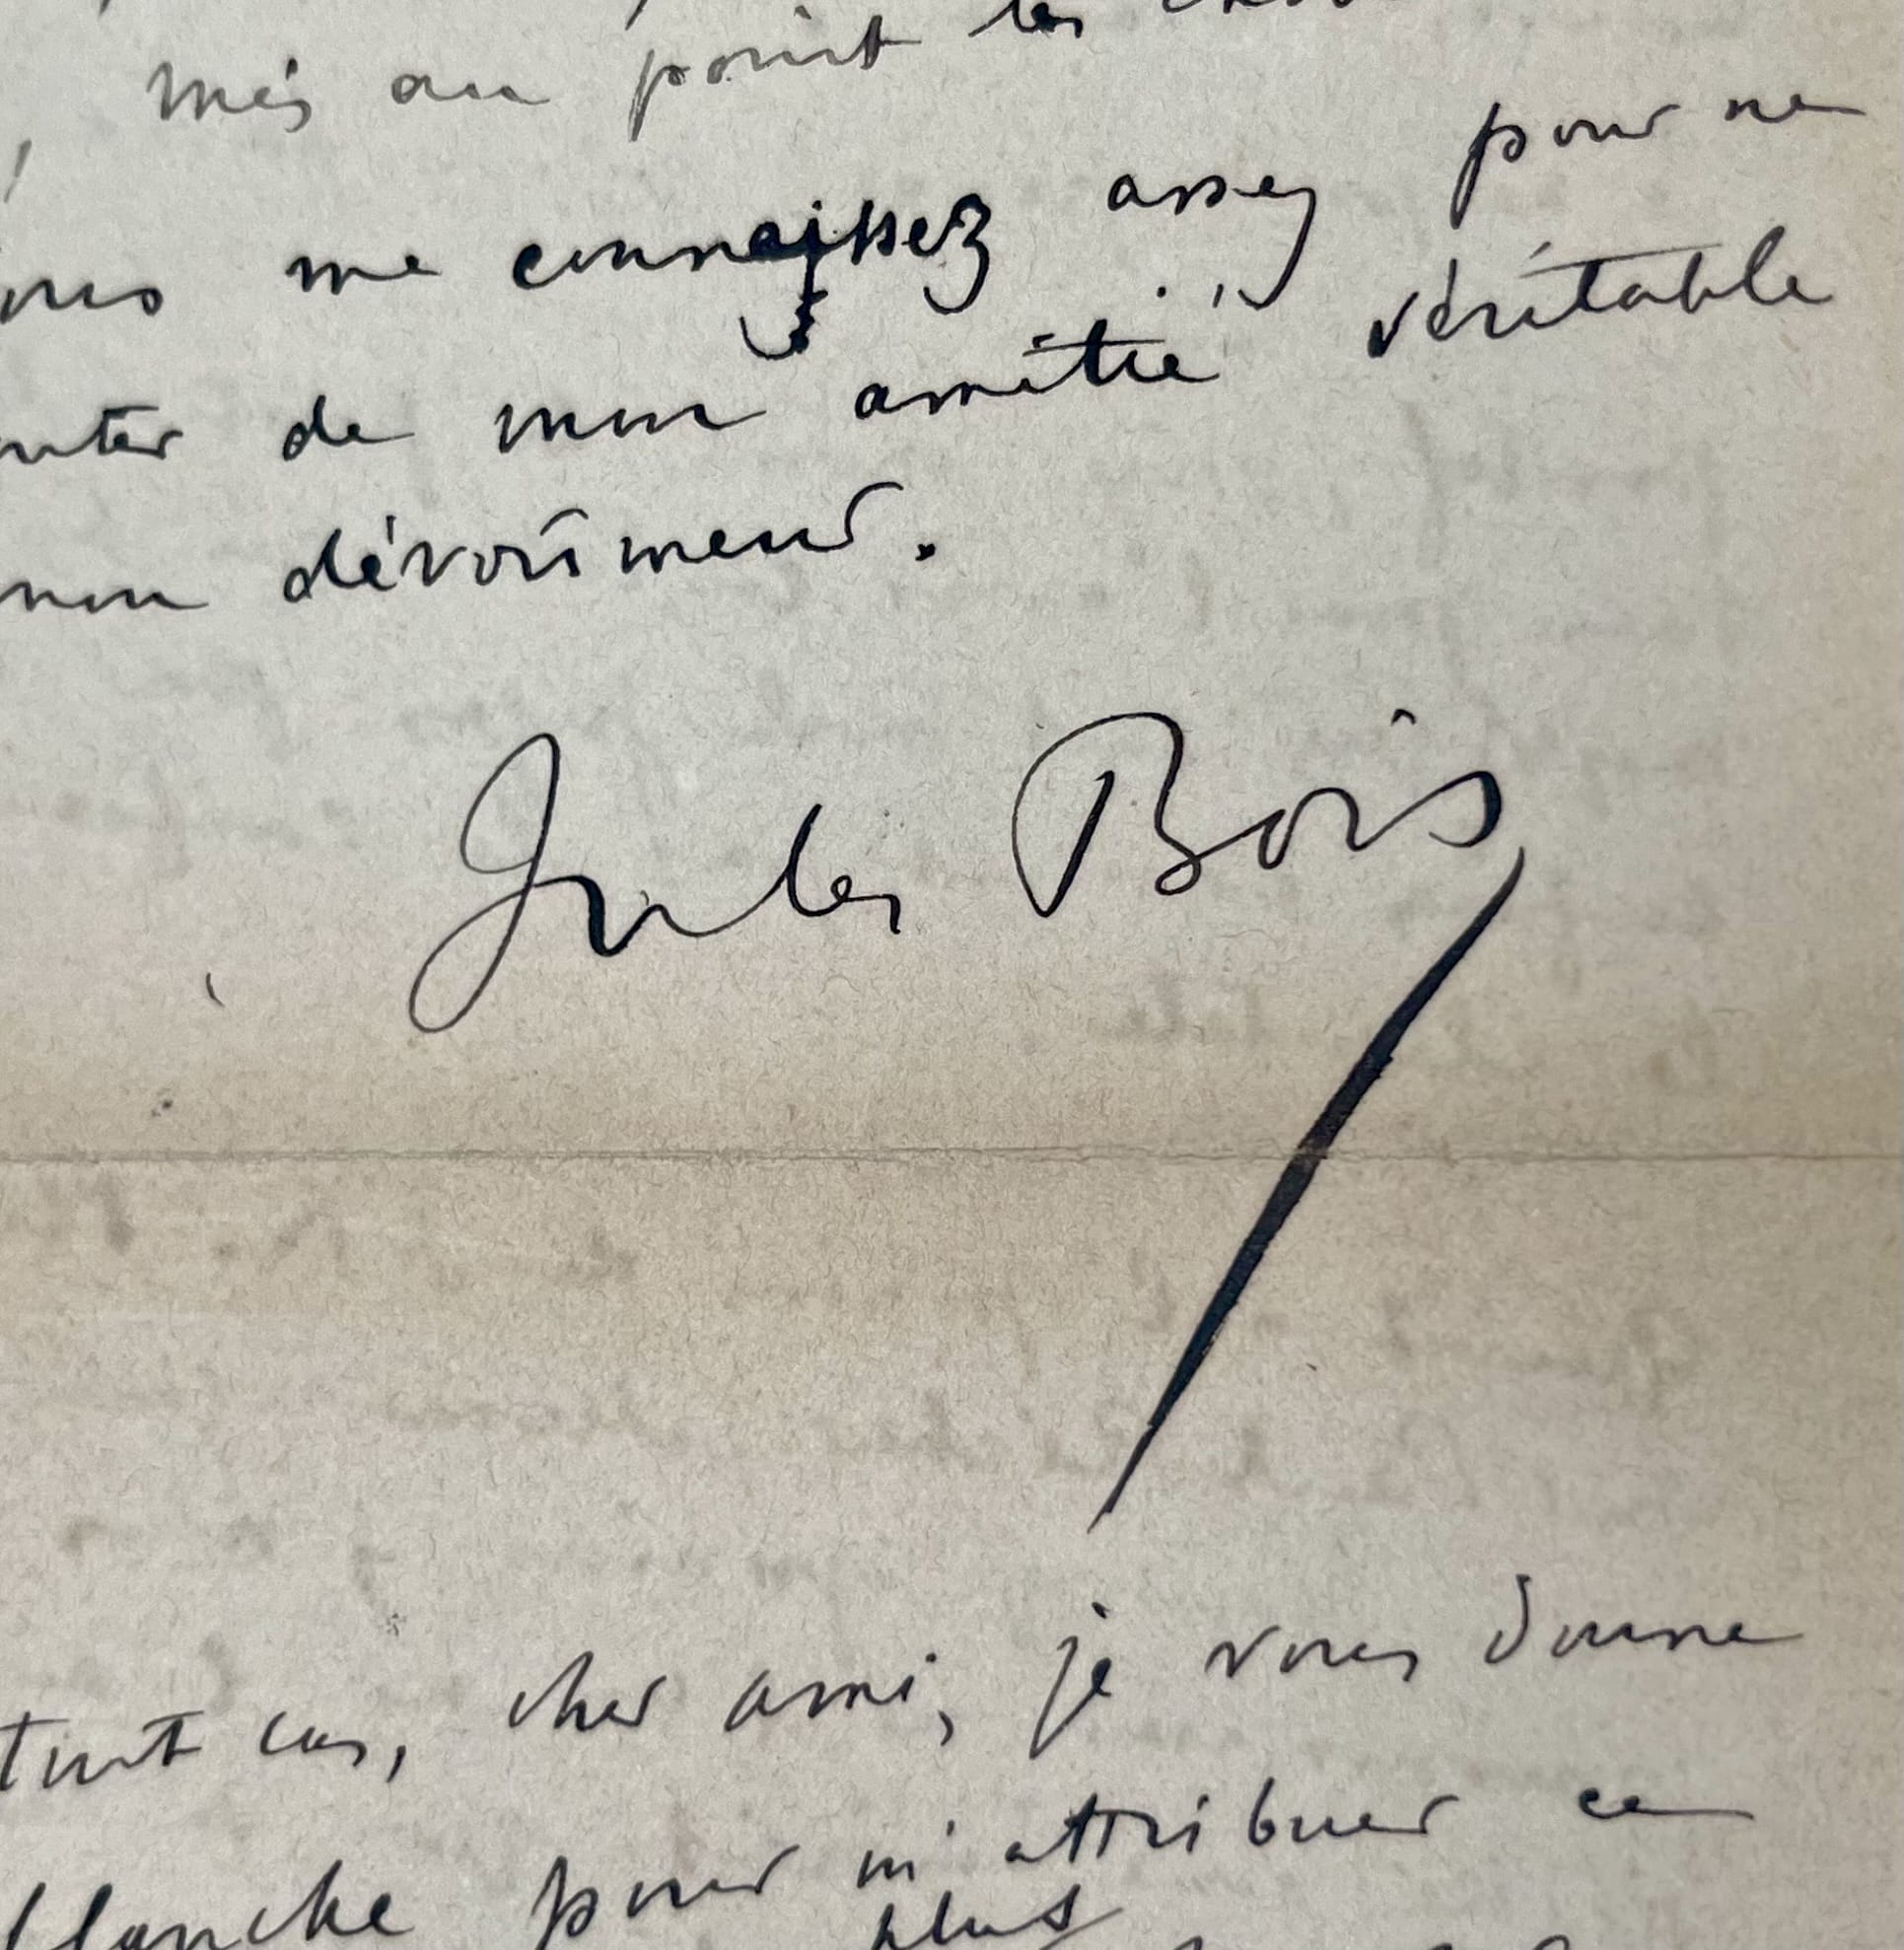 , mis au point les
vous me connaissez assez pour ne
outer de mon amitié véritable
mon dévoûment.
Jules Bois
tout cas, cher ami, je vous donne
blanche pour m'attribuer ce
plus